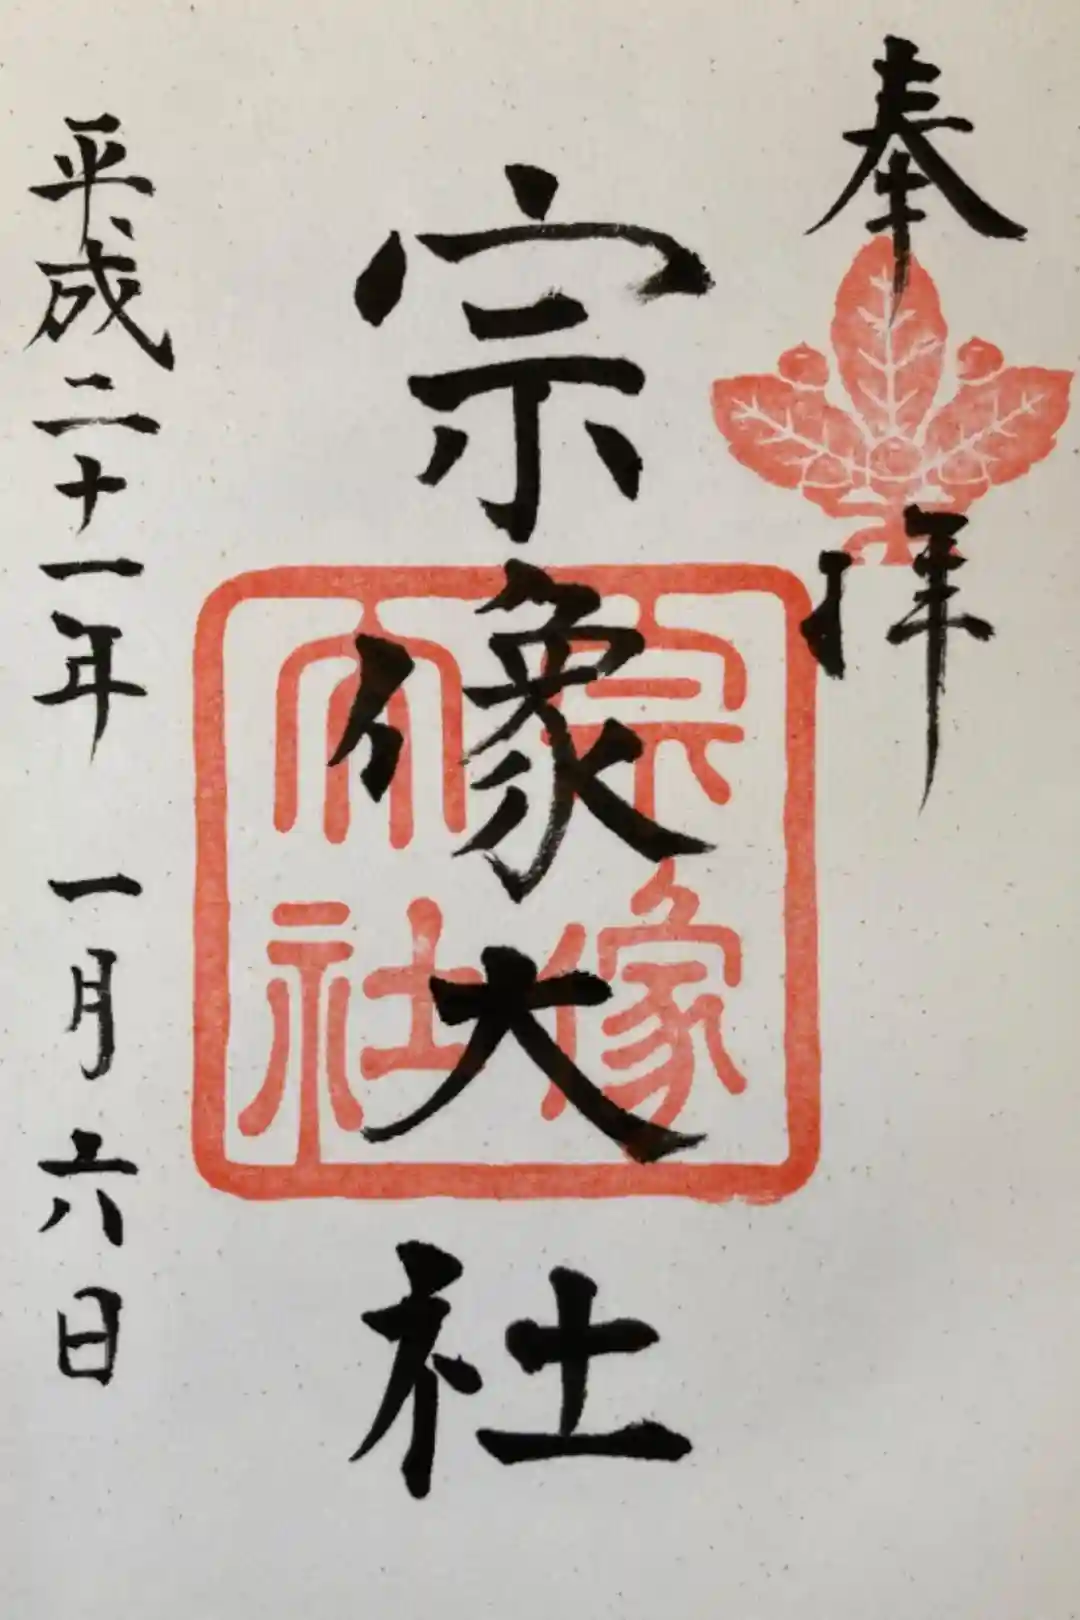 奉拝
宗像大社
宗像大社
平成二十一年 一月六日